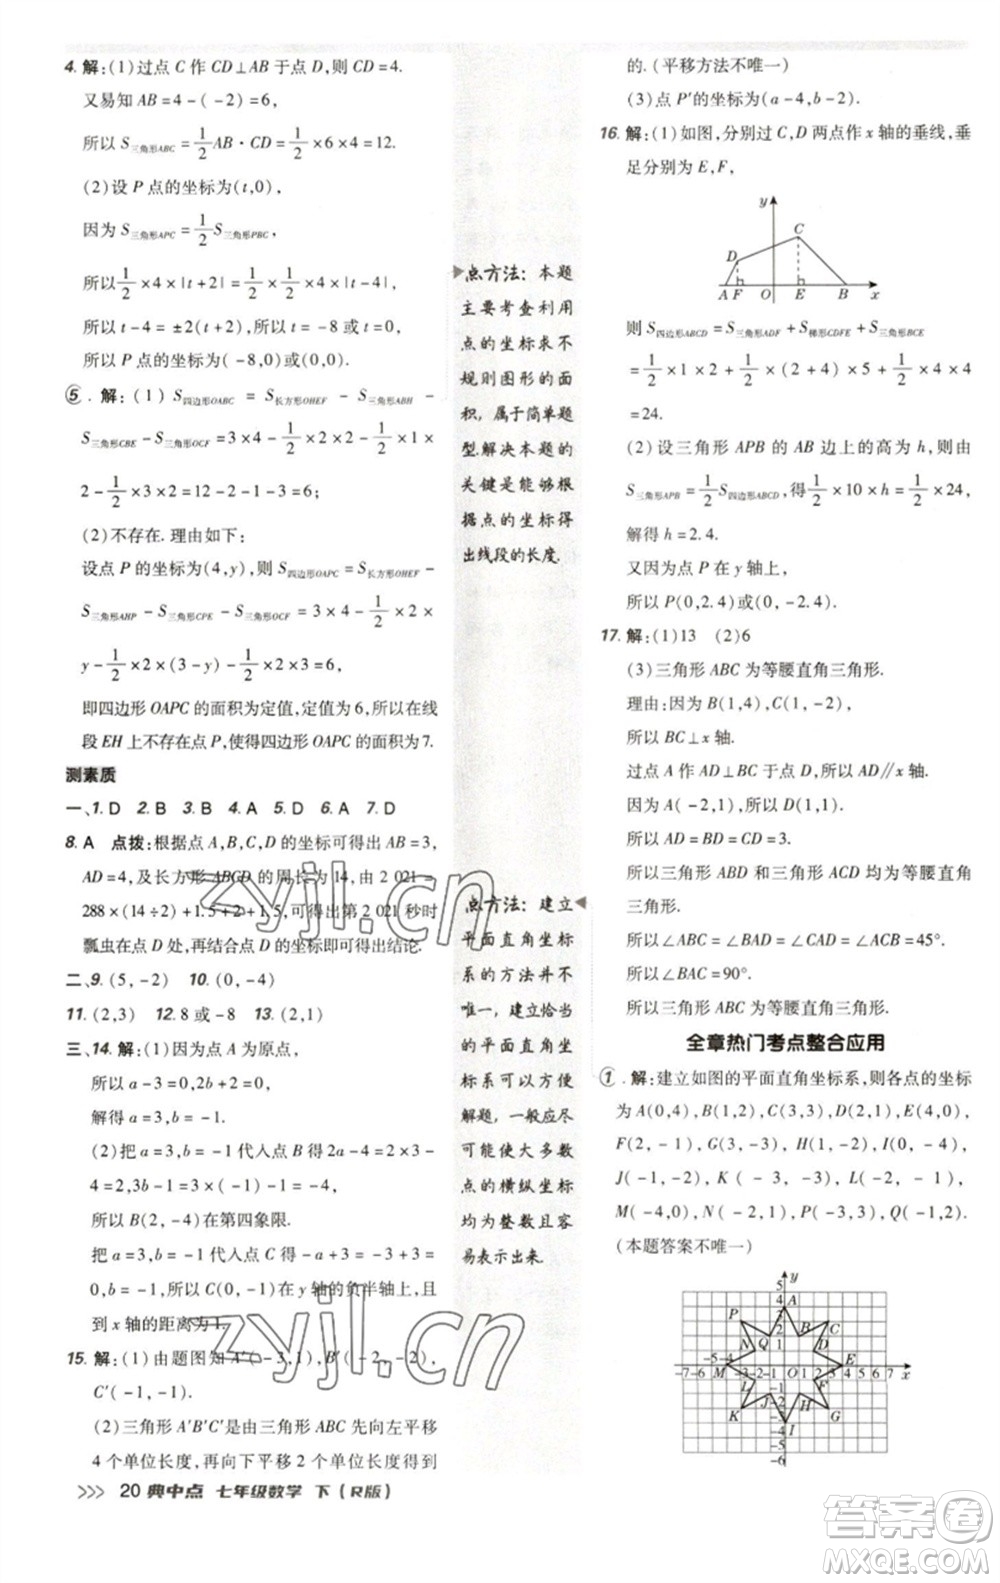 4. 解:(1)过点 C 作 CD⊥AB 于点 D,则 CD=4.
又易知 AB=4-(-2)=6,
所以 S三角形ABC=1/2 AB·CD=1/2×6×4=12.
(2)设 P 点的坐标为(t,0),
因为 S三角形APC=1/2 S三角形PBC,
所以1/2×4×|t+2|=1/2×1/2×4×|t-4|,
所以 t-4=±2(t+2),所以 t=-8 或 t=0.
所以 P 点的坐标为(-8,0)或(0,0).
⑤. 解:(1) S四边形OABC = S长方形OHEF - S三角形ABH -
S三角形CBE-S三角形OCF=3×4-1/2×1×2-1/2×2×
2-1/2×3×2=12-1-2-3=6;
(2)不存在. 理由如下:
设点 P 的坐标为(4,y),则 S四边形OAPC=S长方形OHEF-
S三角形AHP-S三角形CPE-S三角形OCF=3×4-1/2×2×
y-1/2×2×(3-y)-1/2×3×2=6.
即四边形 OAPC 的面积为定值,定值为6,所以在线
段 EH 上不存在点 P,使得四边形 OAPC 的面积为7.
测素质
一、1. D 2. B 3. B 4. A 5. D 6. A 7. D
8. A 点拨:根据点 A,B,C,D 的坐标可得出 AB=3,
AD=4,及长方形 ABCD 的周长为14,由2 021=
288×(14÷2)+1.5+2+1.5,可得出第2 021秒时
瓢虫在点 D 处,再结合点 D 的坐标即可得出结论.
二、9. (5,-2) 10. (0,-4)
11. (2,3) 12. 8 或-8 13. (2,1)
三、14. 解:(1)因为点 A 为原点,
所以 a-3=0,2b+2=0,
解得 a=3,b=-1.
(2)把 a=3,b=-1代入点 B 得 2a-4=2,3b-1=
-4,
所以 B(2,-4)在第四象限.
把 a=3,b=-1代入点 C 得 -a+3=-3+3=
0,b=-1,所以 C(0,-1)在 y 轴的负半轴上,且
到 x 轴的距离为1.
15. 解:(1)由题图知 A′(-3,1),B′(-2,-2),
C′(-1,-1).
(2)三角形 A′B′C′是由三角形 ABC 先向左平移
4 个单位长度,再向下平移2个单位长度得到
>>> 20 典中点 七年级数学 下(R版)
点方法:本题
主要考查利用
点的坐标求不
规则图形的面
积,属于简单题
型.解决本题的
关键是能够根
据点的坐标得
出线段的长度.
点方法:建立
平面直角坐标
系的方法并不
唯一,建立恰当
的平面直角坐
标系可以方便
解题,一般应尽
可能使大多数
点的横纵坐标
均为整数且容
易表示出来.
的.(平移方法不唯一)
(3)点 P′的坐标为(a-4,b-2).
16. 解:(1)如图,分别过 C,D 两点作 x 轴的垂线,垂
足分别为 E,F,
y
C
D
A F O E B x
则 S四边形ABCD=S三角形ADF+S梯形CDFE+S三角形BCE
=1/2×1×2+1/2×(2+4)×5+1/2×4×4
=24.
(2)设三角形 APB 的 AB 边上的高为 h,则由
S三角形APB=1/2 S四边形ABCD,得1/2×10×h=1/2×24,
解得 h=2.4.
又因为点 P 在 y 轴上,
所以 P(0,2.4)或(0,-2.4).
17. 解:(1)13 (2)6
(3)三角形 ABC 为等腰直角三角形.
理由:因为 B(1,4),C(1,-2),
所以 BC⊥x 轴.
过点 A 作 AD⊥BC 于点 D,所以 AD∥x 轴.
因为 A(-2,1),所以 D(1,1),
所以 AD=BD=CD=3.
所以三角形 ABD 和三角形 ACD 为等腰直角
三角形.
所以∠BAD=∠CAD=∠ACB=45°.
所以∠BAC=90°.
所以三角形 ABC 为等腰直角三角形.
全章热门考点整合应用
①. 解:建立如图的平面直角坐标系,则各点的坐标
为 A(0,4),B(1,2),C(3,3),D(2,1),E(4,0),
F(2,-1),G(3,-3),H(1,-2),I(0,-4),
J(-1,-2),K(-3,-3),L(-2,-1),
M(-4,0),N(-2,1),P(-3,3),Q(-1,2).
(本题答案不唯一)
zyjl.cn
zyjl.cn
答案圈
MXQE.COM